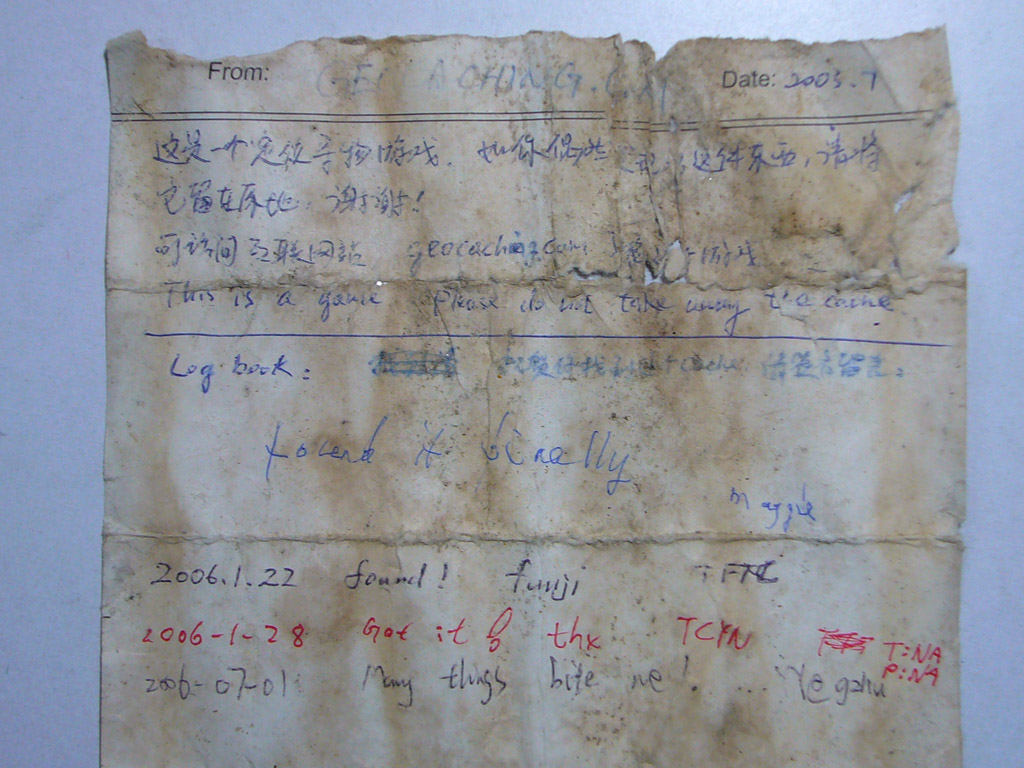 From: GE ACHING.C Date: 2005.7
这是一个定位寻物游戏. 如你偶然 这件东西,请将
它留在原地. 谢谢!
可访问互联网站 geocaching.com 游戏
This is a game Please do not take away the cache
Log book: cache 请签名留言:
found it finally
Maggie
2006.1.22 found! funji TFTC
2006-1-28 Got it & thx TCYN T:NA
P:NA
2006-07-01 Many things bite me! ... Ye ganu